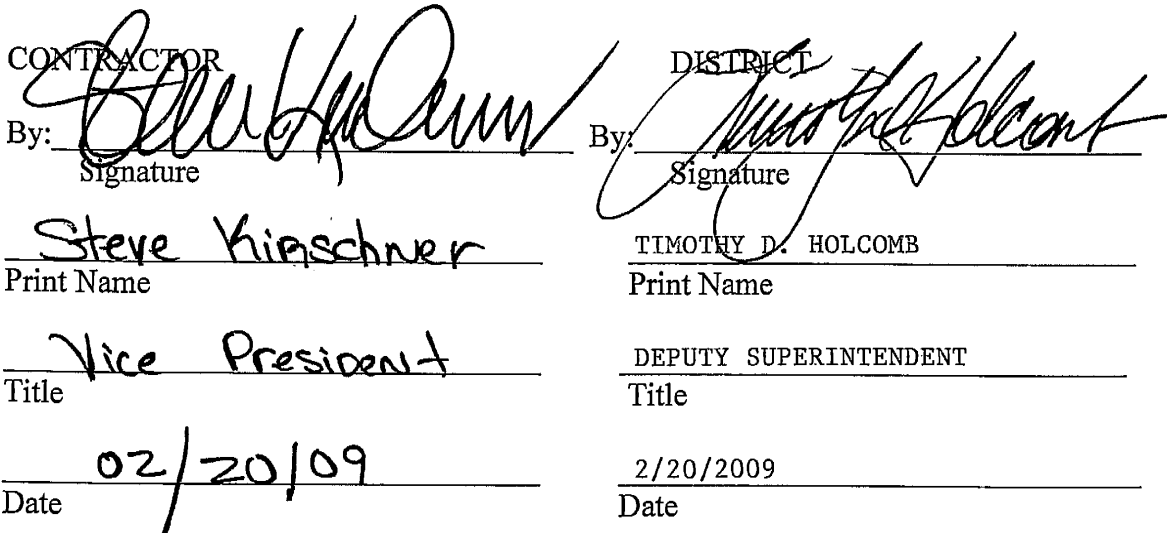 CONTRACTOR
By: Steve Kirschner
Signature
Steve Kirschner
Print Name
Vice President
Title
02/20/09
Date
DISTRICT
By: Timothy D. Holcomb
Signature
TIMOTHY D. HOLCOMB
Print Name
DEPUTY SUPERINTENDENT
Title
2/20/2009
Date